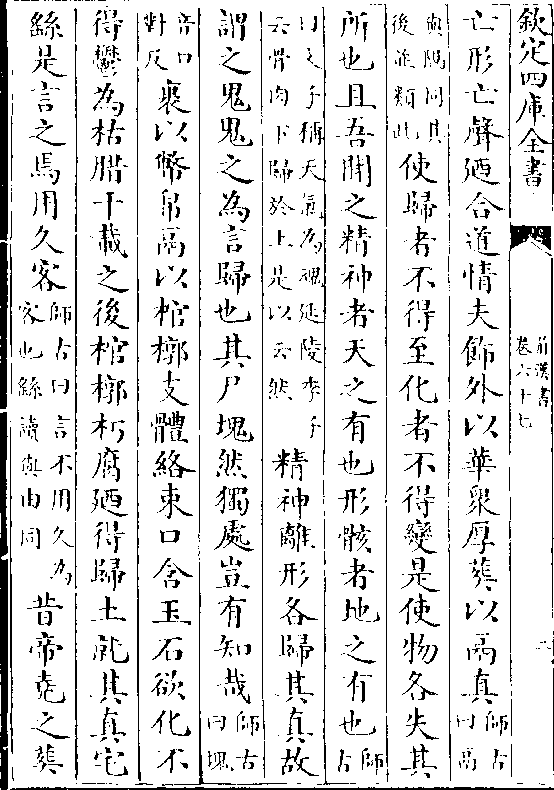 欽定四庫全書
前漢書
卷六十七
亡形亡聲廼合道情夫飾外以華衆厚葬以鬲真師古曰鬲
與隔同其後並類此使歸者不得至化者不得變是使物各失其
所也且吾聞之精神者天之有也形骸者地之有也師古
曰文子稱天氣為魂延陵季子云骨肉下歸於土是以云然精神離形各歸其真故
謂之鬼鬼之為言歸也其尸塊然獨處豈有知哉師古曰塊
音口對反裹以幣帛鬲以棺槨支體絡束口含玉石欲化不
得鬱為枯腊千載之後棺槨朽腐廼得歸土就其真宅
繇是言之焉用久客師古曰言不用久為客也繇讀與由同昔帝堯之葬